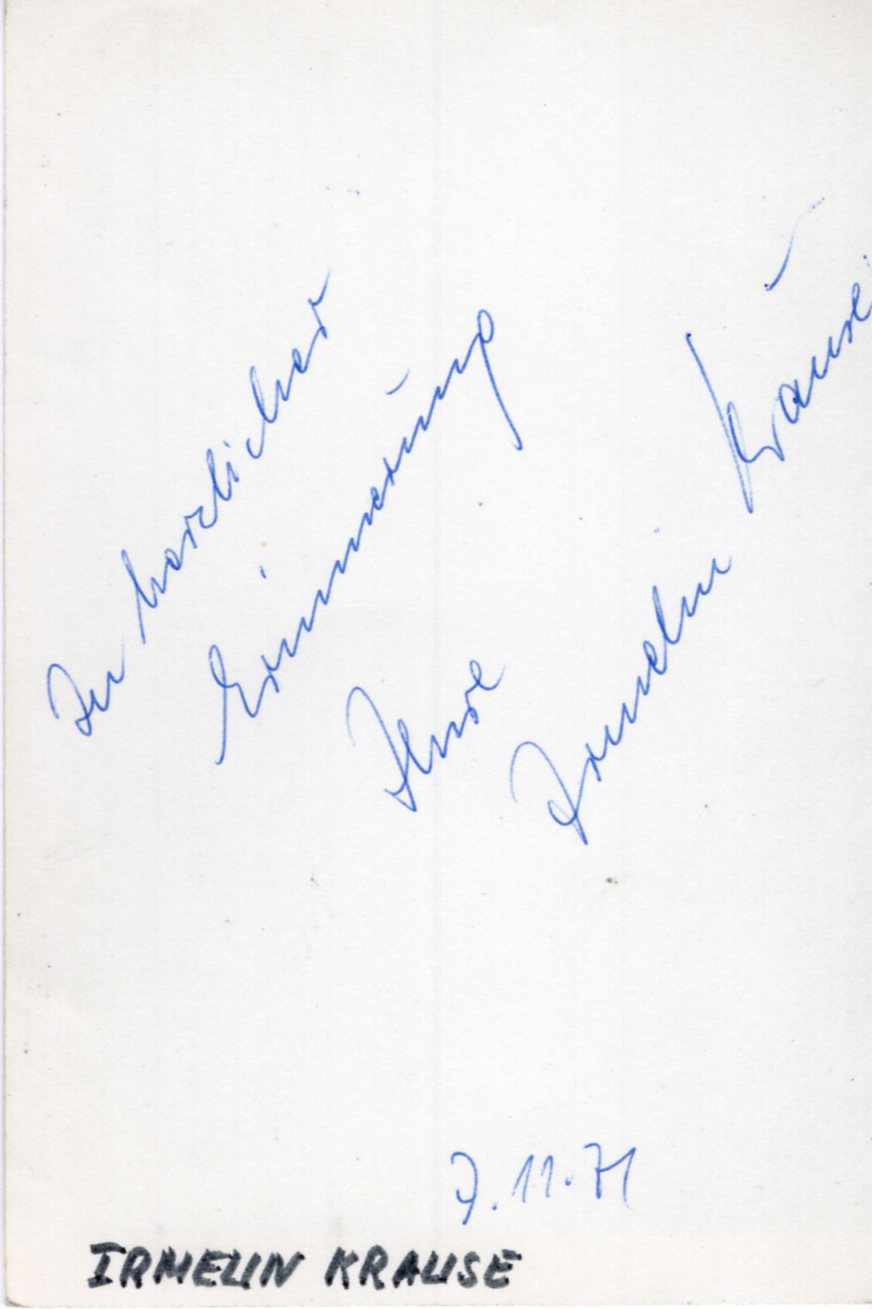 In herzlicher
Erinnerung
Ihre
Irmelin Krause
7.11.71
IRMELIN KRAUSE